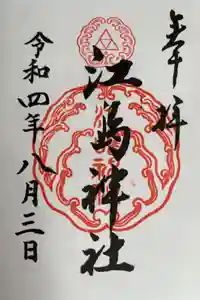 奉拝
江島神社
令和四年八月三日